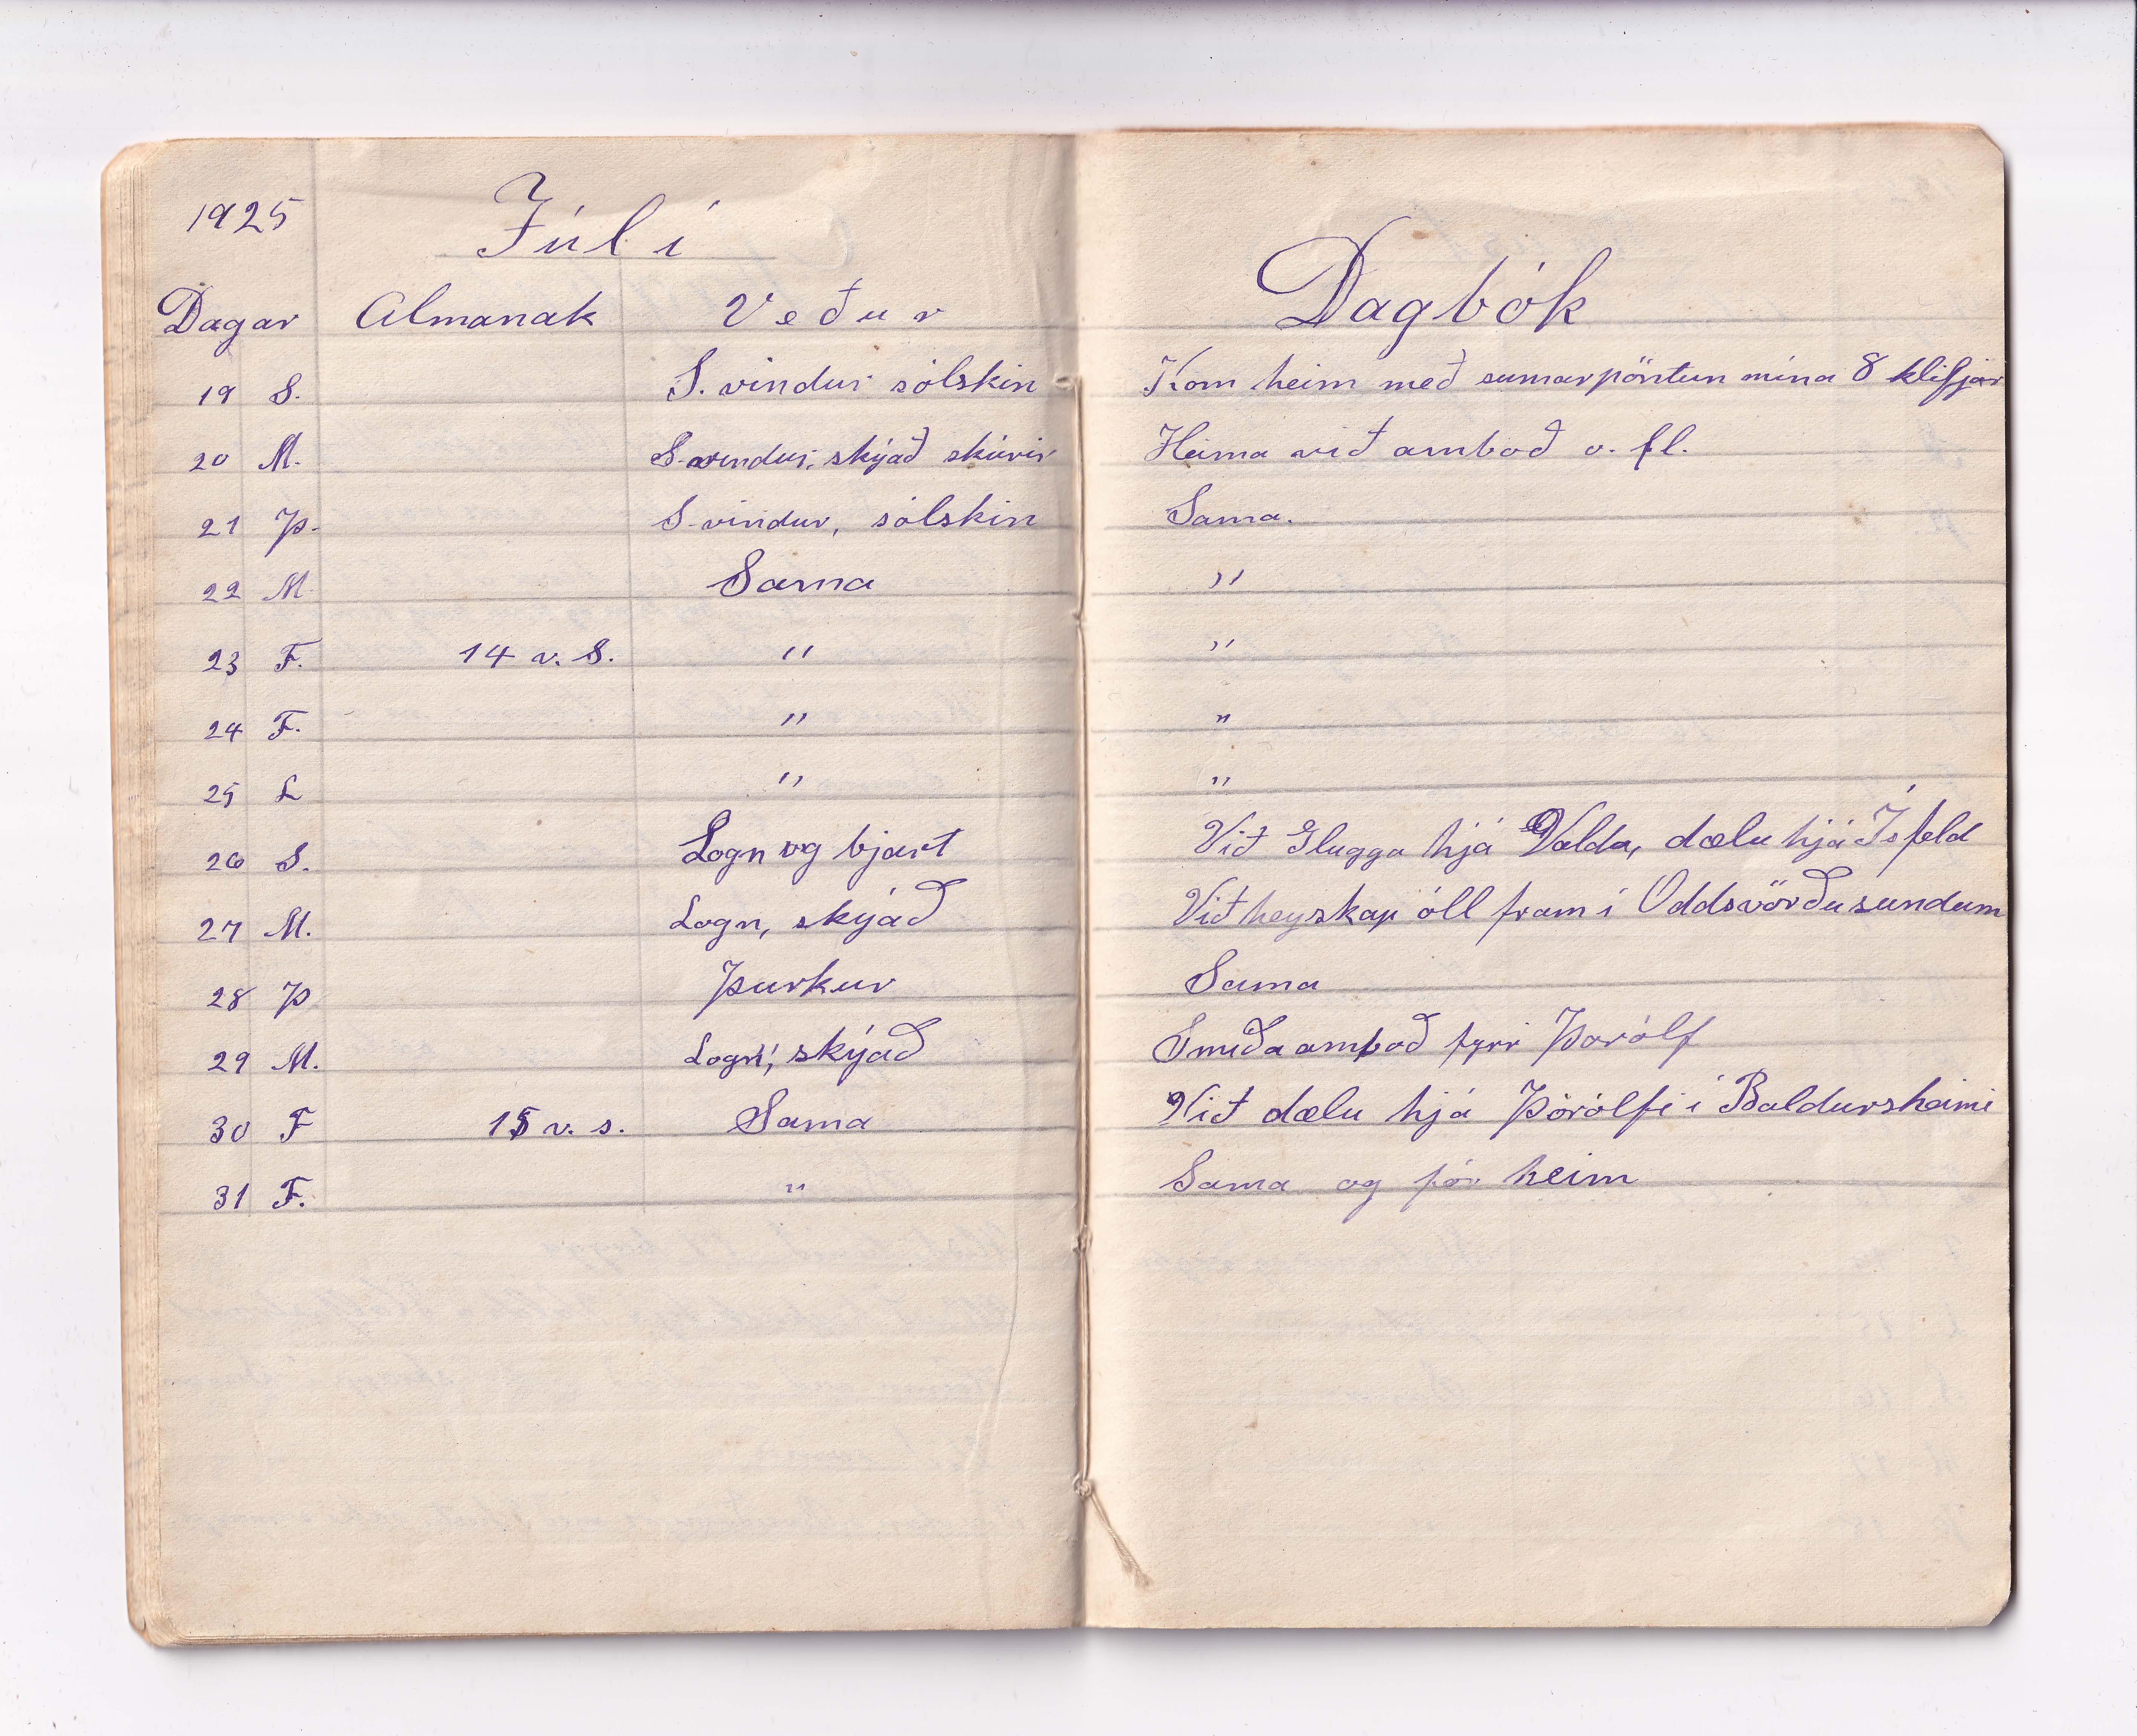 1925 Júlí
Dagar Almanak Veður
19 S. S. vindur sólskin
20 M. S-vindur, skýjað skúrir
21 Þ. S-vindur, sólskin
22 M. Sama
23 F. 14 v. S. "
24 F. "
25 L "
26 S. Logn og bjart
27 M. Logn, skýað
28 Þ Þurkur
29 M. Logn, skýað
30 F 15 v. s. Sama
31 F. "
Dagbók
Kom heim með sumarpöntun mína 8 klifjar
Heima við amboð o. fl.
Sama.
"
"
"
"
Við Glugga hjá Valda, dælu hjá Ísfeld
Við heyskap öll fram í Oddsvörðusundum
Sama
Smíða amboð fyrir Þórólf
Við dælu hjá Þórólfi í Baldursheimi
Sama og fór heim